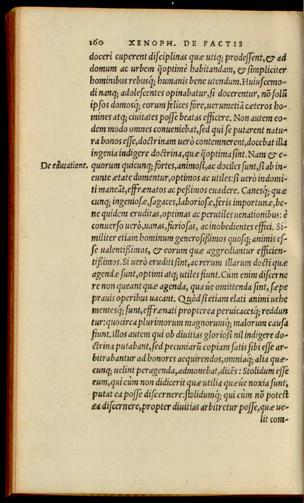 160 XENOPH. DE FACTIS
doceri cuperent disciplinas quæ utiq; prodessent, & ad
domum ac urbem q̃optimè habitandam, & simpliciter
hominibus rebusq; humanis bene utendum. Huiuscemo-
di nanq; adolescentes opinabatur, si docerentur, nõ solũ
ipsos domosq; eorum felices fore, uerumetiã cæteros ho-
mines atq; ciuitates posse beatas efficere. Non autem eo-
dem modo omnes conueniebat, sed qui se putarent natu-
ra bonos esse, doctrinam uerò contemnerent, docebat illa
ingenia indigere doctrina, quæ q̃optima sint. Nam & e-
De educatione. quorum quicunq; fortes, animosi, ac dociles sunt, si ab in-
eunte ætate domentur, optimos ac utiles: si uerò indomi-
ti maneãt, effrænatos ac peßimos euadere. Canesq; quæ
cunq; ingeniosæ, sagaces, laboriosæ, feris importunæ, be-
ne quidem eruditas, optimas ac perutiles uenationibus: è
conuerso uerò, uanas, furiosas, ac inobedientes effici. Si-
militer etiam hominum generosißimos quosq; animis es-
se ualentißimos, & eorum quæ aggrediantur efficien-
tißimos. Si uerò eruditi sint, ac rerum illarum docti quæ
agendæ sunt, optimi atq; utiles fiunt. Cùm enim discerne
re non queant quæ agenda, quæ ue omittenda sint, sæpe
prauis operibus uacant. Quòd si etiam elati animi uehe
mentesq; sunt, effrænati propterea peruicacesq; reddun
tur: quocirca plurimorum magnorumq; malorum causa
fiunt. Illos autem qui ob diuitias gloriosi nil indigere do-
ctrina putabant, sed pecuniarũ copiam satis sibi esse ar-
bitrabantur ad honores acquirendos, omniaq; alia quæ
cunq; uelint peragenda, admonebat, dicẽs: Stolidum esse
eum, qui cùm non didicerit quæ utilia quæ ue noxia sunt,
putat ea posse discernere: stolidumq; qui cùm nõ potest
ea discernere, propter diuitias arbitretur posse, quæ ue-
lit com-